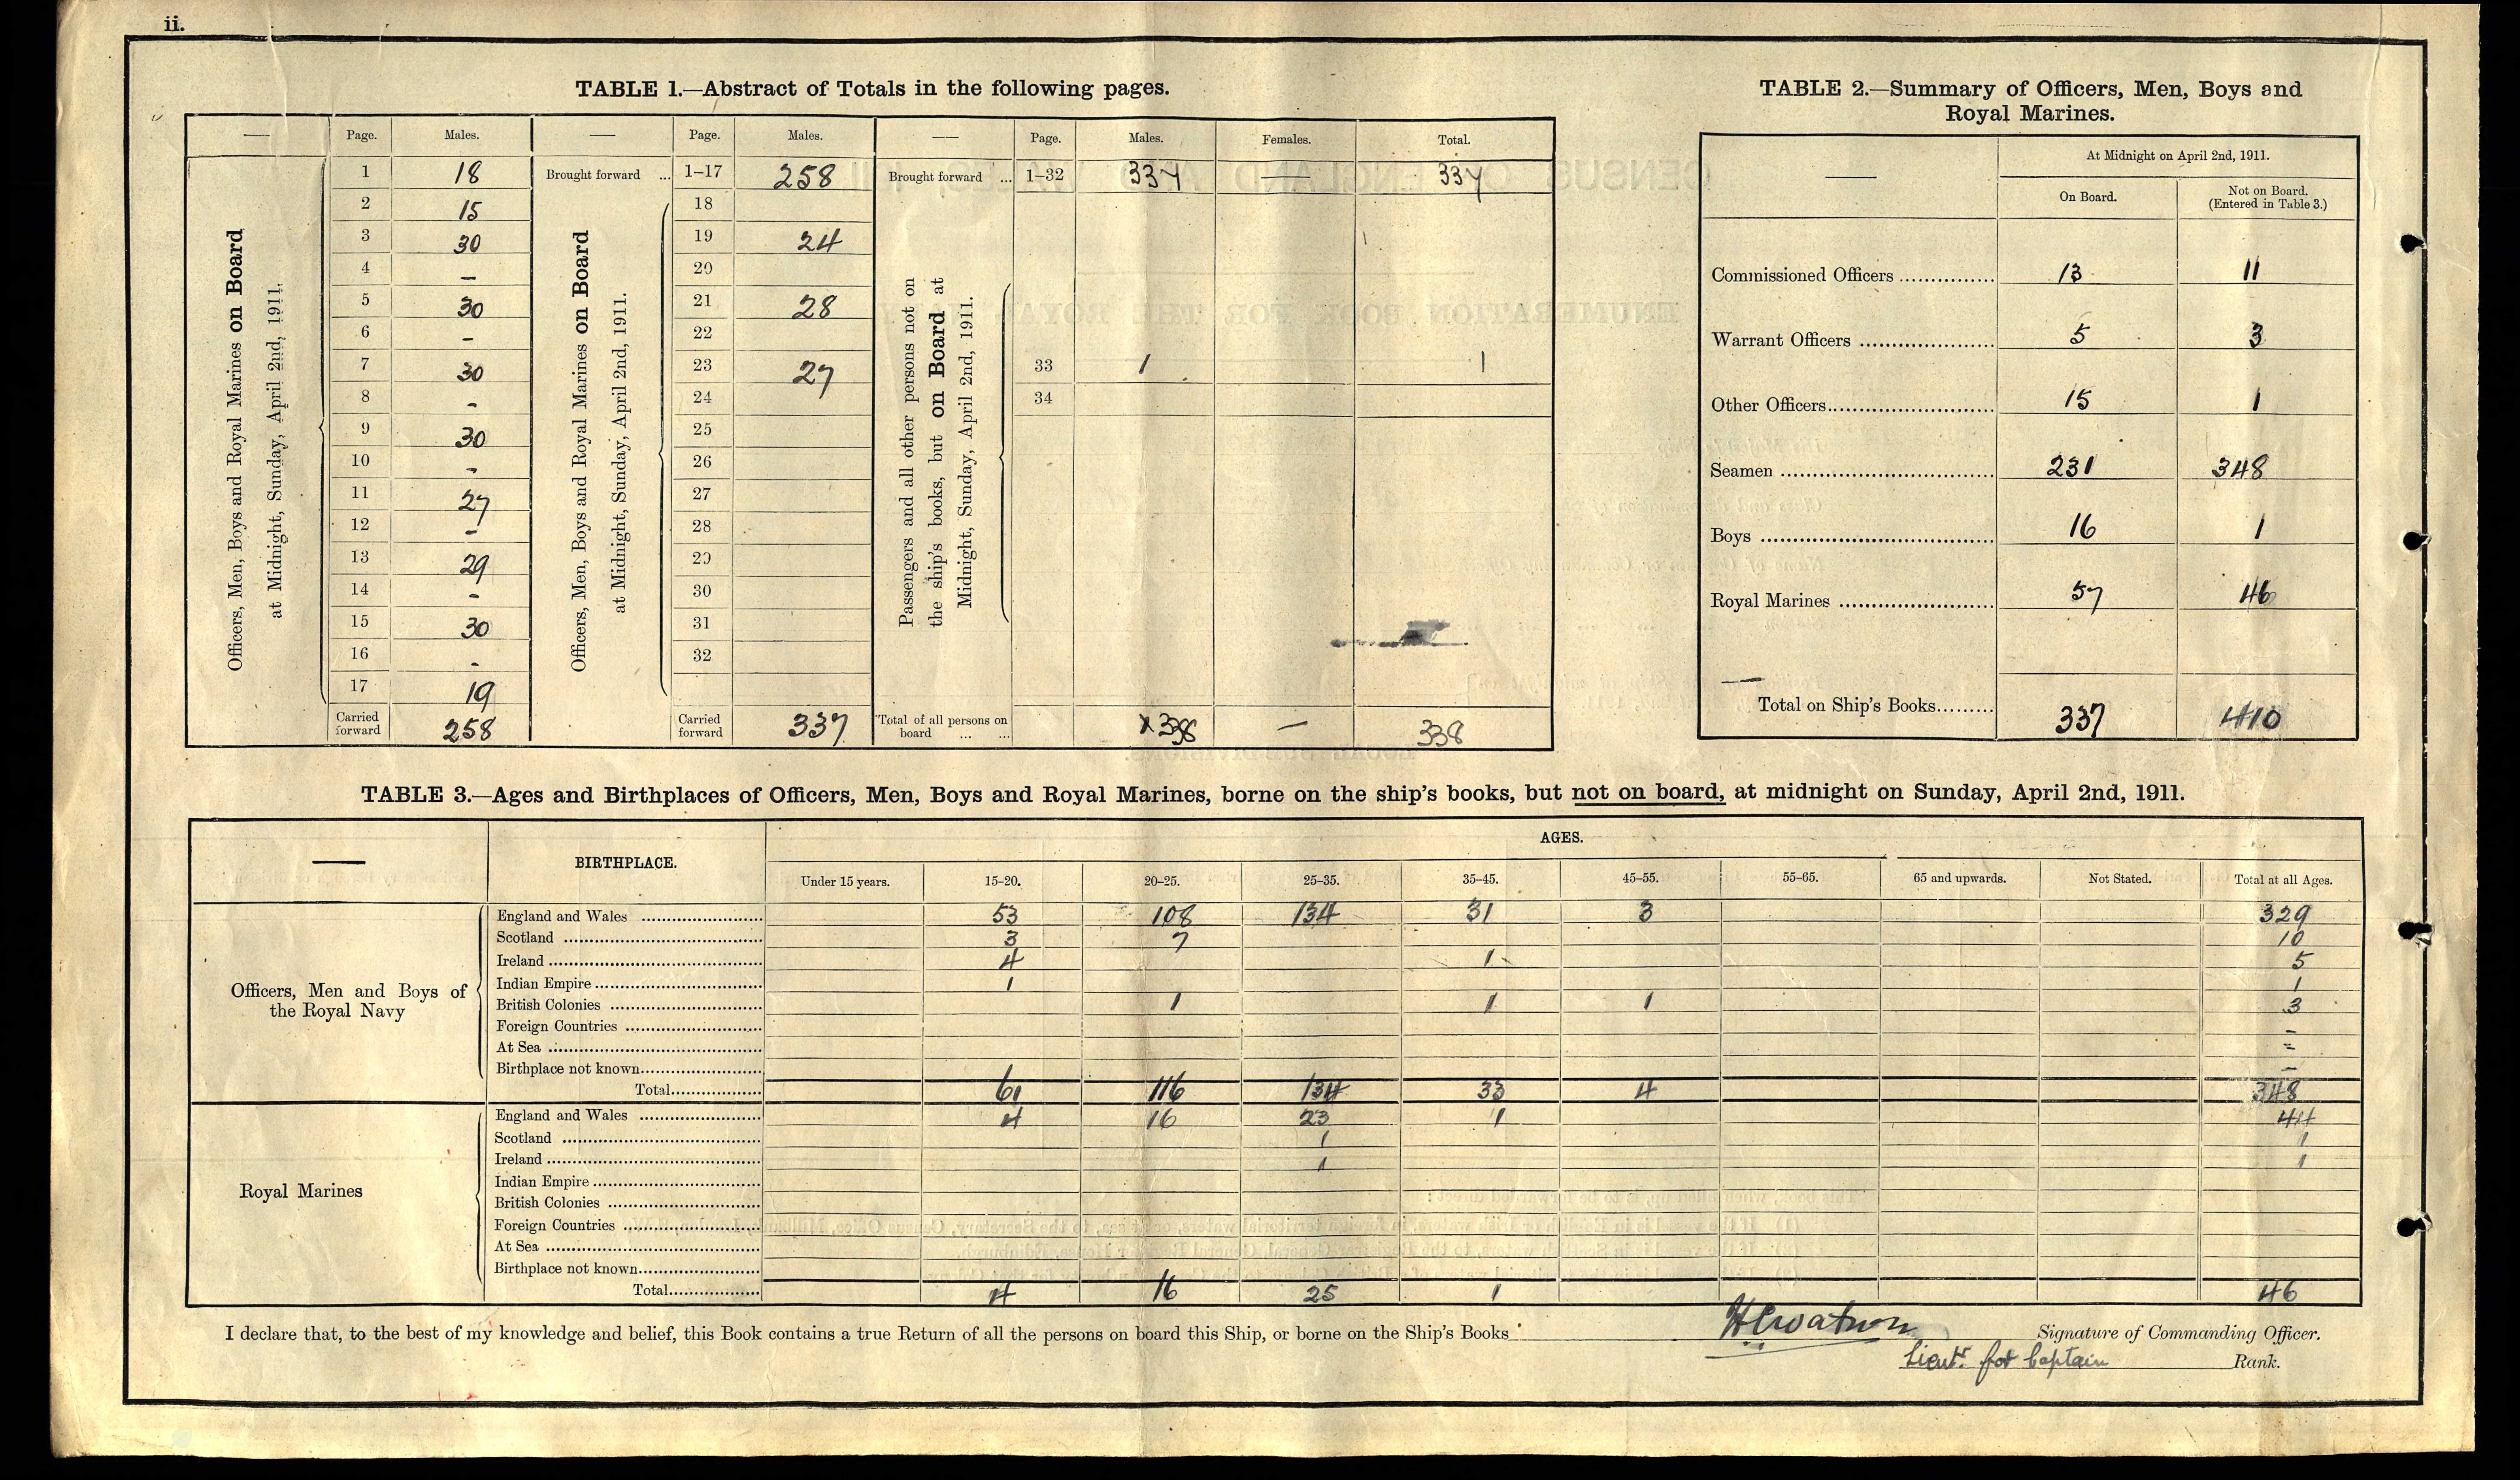 ii.
TABLE 1.—Abstract of Totals in the following pages.
— Page. Males. — Page. Males. — Page. Males. Females. Total.
Officers, Men, Boys and Royal Marines on Board
at Midnight, Sunday, April 2nd, 1911.
1 18
2 15
3 30
4 -
5 30
6 -
7 30
8 -
9 30
10 -
11 27
12 -
13 29
14 -
15 30
16 -
17 19
Carried forward 258
Brought forward ... 1-17 258
Officers, Men, Boys and Royal Marines on Board
at Midnight, Sunday, April 2nd, 1911.
18
19 24
20
21 28
22
23 27
24
25
26
27
28
29
30
31
32
Carried forward 337
Brought forward ... 1-32 337 — 337
Passengers and all other persons not on
the ship's books, but on Board at
Midnight, Sunday, April 2nd, 1911.
33 1 1
34
Total of all persons on board ... ... X 338 — 338
TABLE 2.—Summary of Officers, Men, Boys and
Royal Marines.
— At Midnight on April 2nd, 1911.
On Board. Not on Board. (Entered in Table 3.)
Commissioned Officers 13 11
Warrant Officers 5 3
Other Officers 15 1
Seamen 231 348
Boys 16 1
Royal Marines 57 46
Total on Ship's Books 337 410
TABLE 3.—Ages and Birthplaces of Officers, Men, Boys and Royal Marines, borne on the ship's books, but not on board, at midnight on Sunday, April 2nd, 1911.
— BIRTHPLACE. AGES.
Under 15 years. 15-20. 20-25. 25-35. 35-45. 45-55. 55-65. 65 and upwards. Not Stated. Total at all Ages.
Officers, Men and Boys of
the Royal Navy
England and Wales 53 108 134 31 3 329
Scotland 3 7 10
Ireland 4 1 5
Indian Empire 1 1
British Colonies 1 1 1 3
Foreign Countries -
At Sea -
Birthplace not known -
Total 61 116 134 33 4 348
Royal Marines
England and Wales 4 16 23 1 44
Scotland 1 1
Ireland 1 1
Indian Empire
British Colonies
Foreign Countries
At Sea
Birthplace not known
Total 4 16 25 1 46
I declare that, to the best of my knowledge and belief, this Book contains a true Return of all the persons on board this Ship, or borne on the Ship's Books
Signature of Commanding Officer.
Lieutt. for Captain Rank.